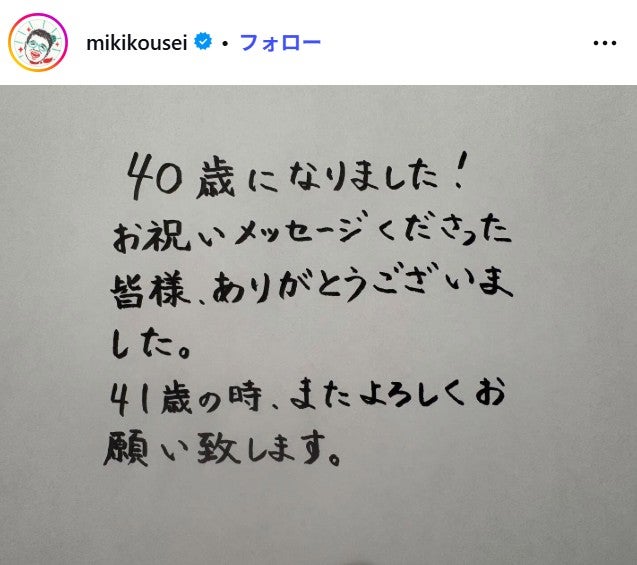 mikikousei • フォロー
40歳になりました！
お祝いメッセージくださった
皆様、ありがとうございま
した。
41歳の時、またよろしくお
願い致します。